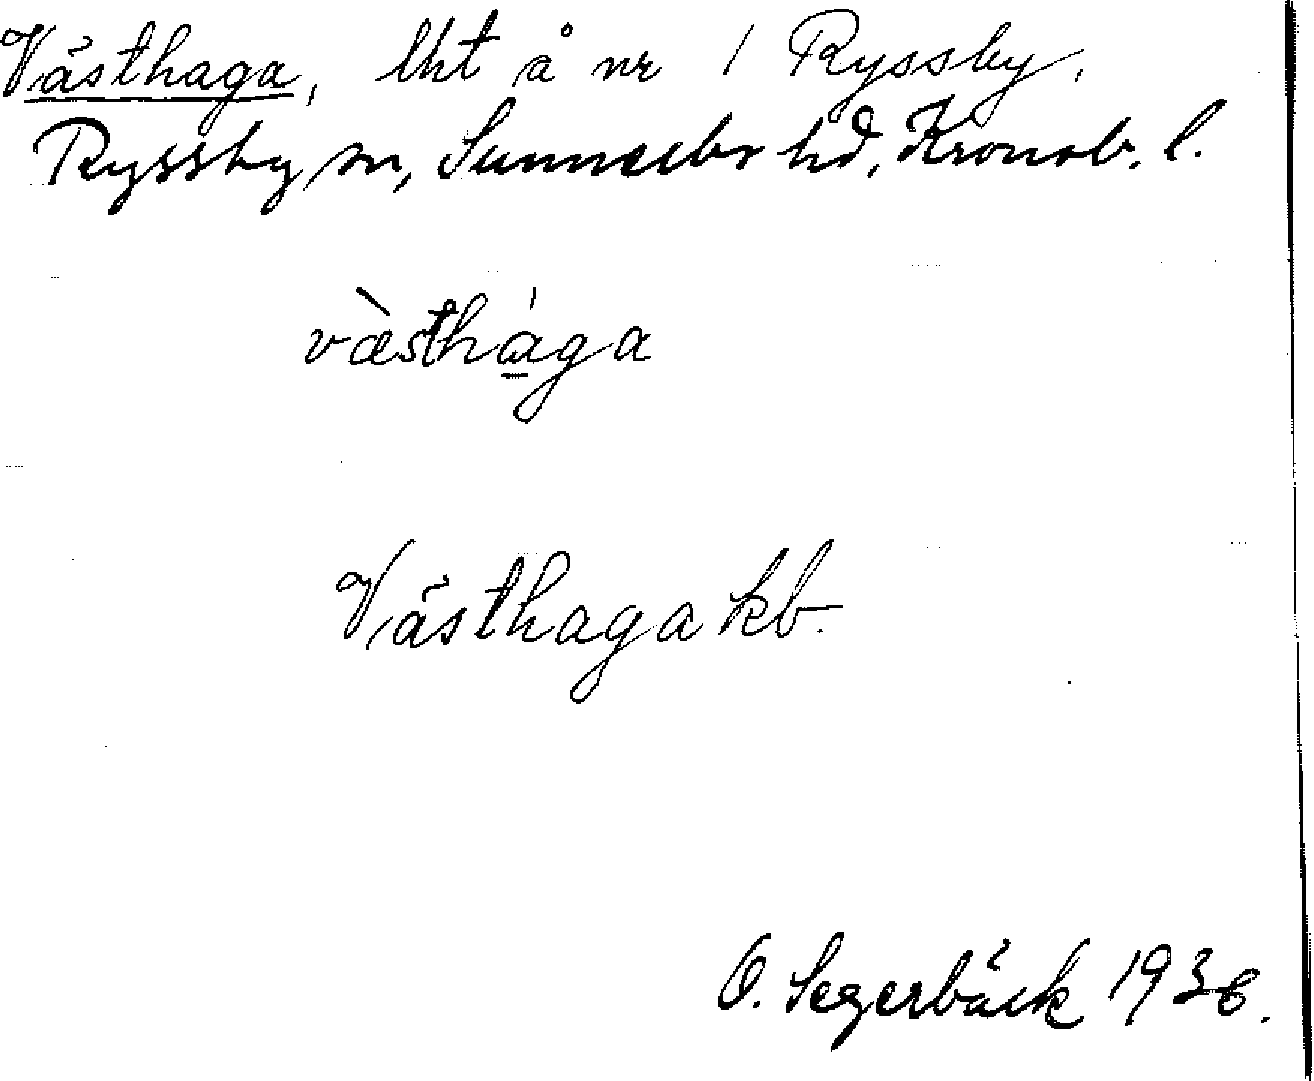 Västhaga, lht å nr 1 Ryssby,
Ryssby sn, Sunnerbo hd, Kronob. l.
væ̀sthága
Västhaga kb.
O. Segerbäck 1936.